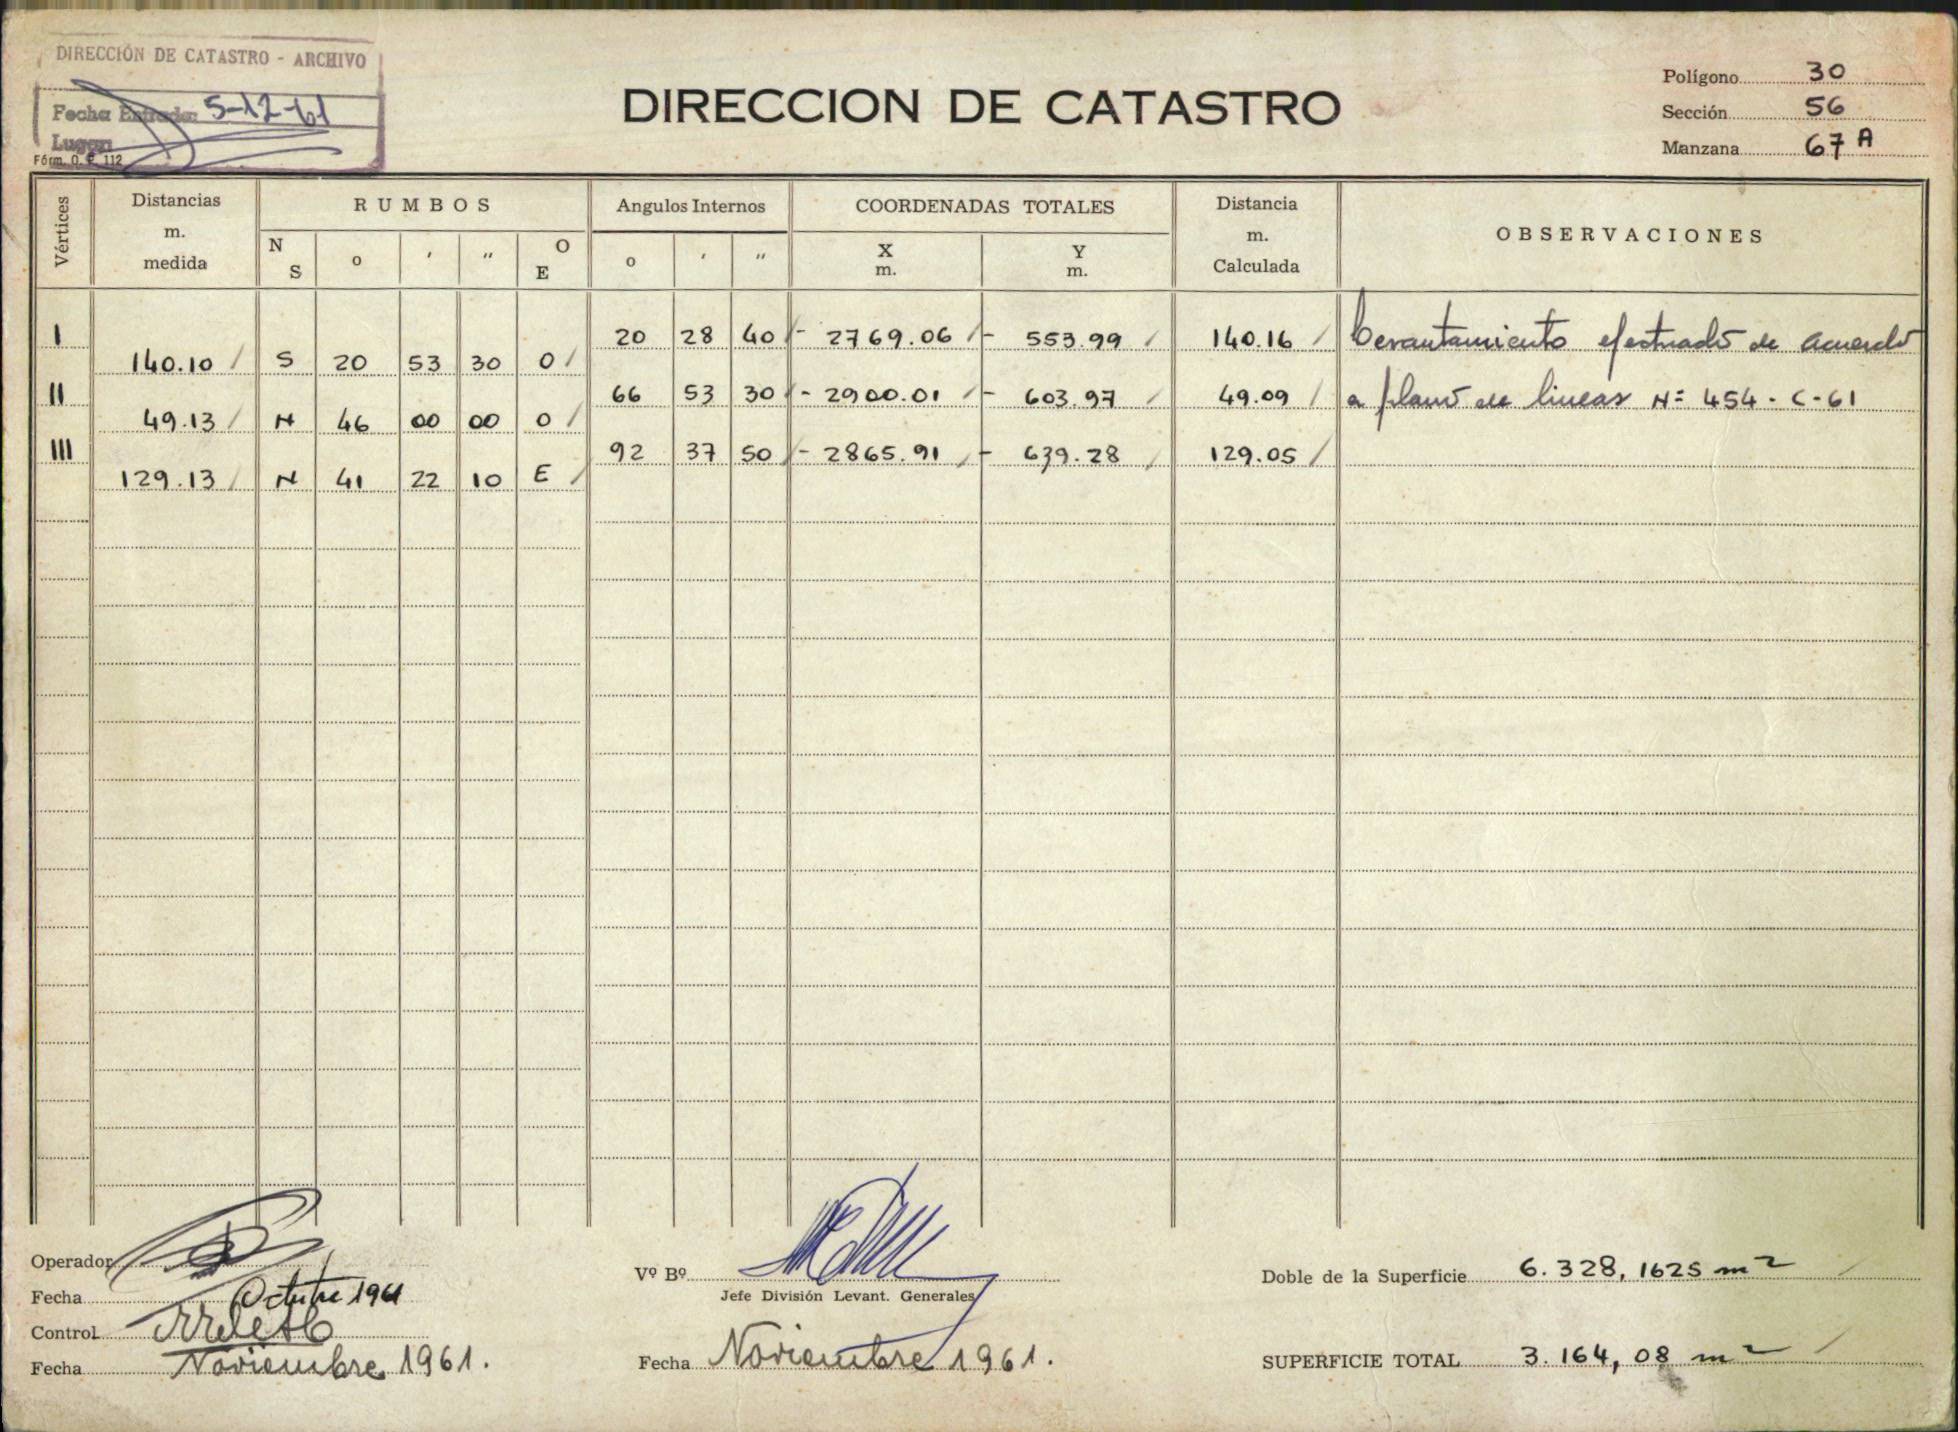 DIRECCIÓN DE CATASTRO - ARCHIVO
Fecha Entrada: 5-12-61
Lugar:
Fórm. O. P. 112
DIRECCION DE CATASTRO
Polígono 30
Sección 56
Manzana 67 A
Vértices
Distancias m. medida
RUMBOS
N S o ' " O E
Angulos Internos
o ' "
COORDENADAS TOTALES
X m. Y m.
Distancia m. Calculada
OBSERVACIONES
I 20 28 40 - 2769.06 - 553.99 140.16 Levantamiento efectuado de acuerdo
140.10 S 20 53 30 O
II 66 53 30 - 2900.01 - 603.97 49.09 a plano de lineas Nº 454 - C - 61
49.13 N 46 00 00 O
III 92 37 50 - 2865.91 - 639.28 129.05
129.13 N 41 22 10 E
Operador
Fecha Octubre 1961
Control
Fecha Noviembre 1961.
Vº Bº
Jefe División Levant. Generales
Fecha Noviembre 1961.
Doble de la Superficie 6.328,1625 m2
SUPERFICIE TOTAL 3.164,08 m2